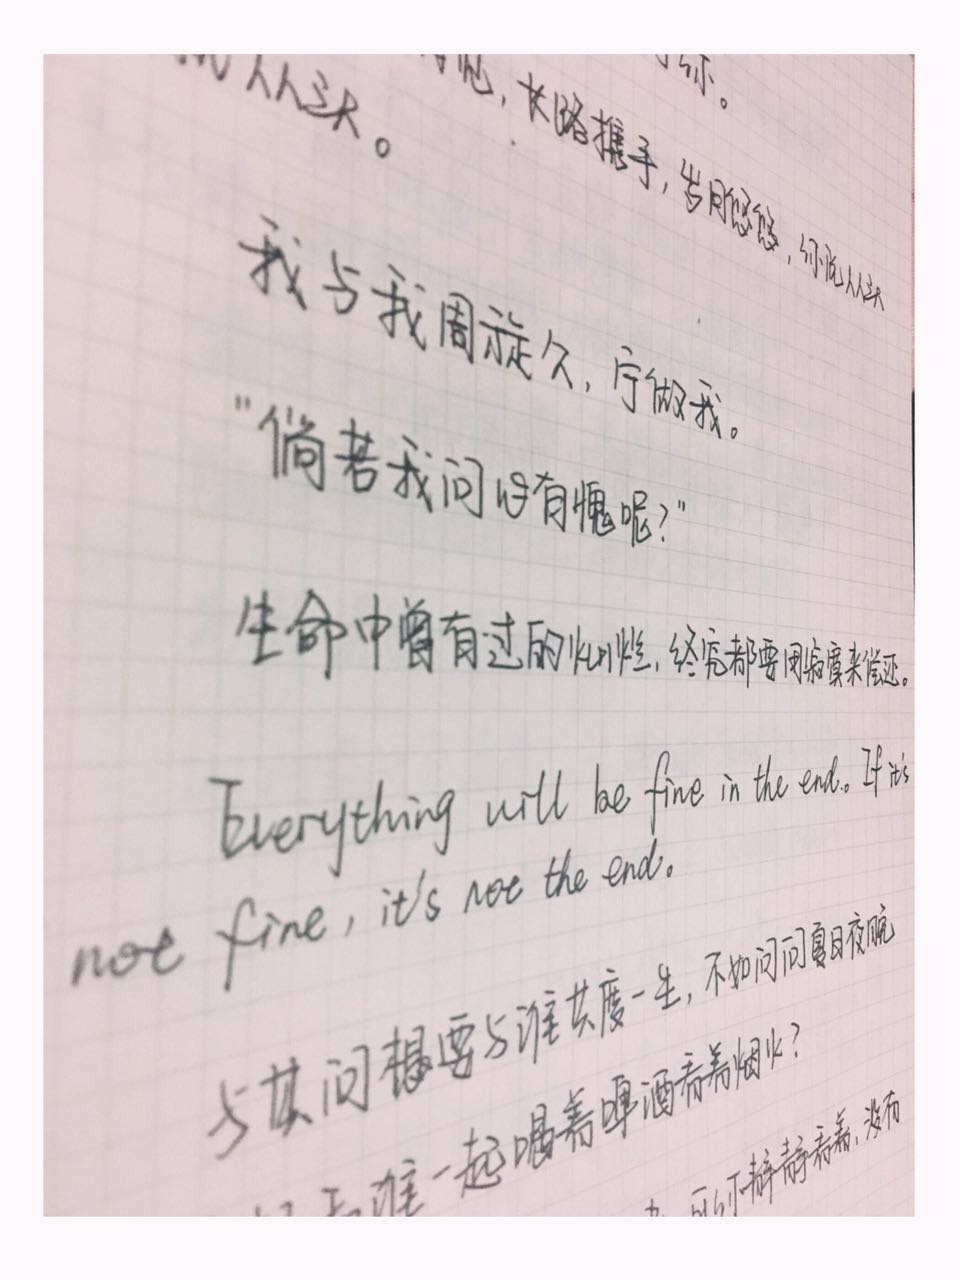 你。
，长路携手，岁月悠悠，你说从头
从头。
我与我周旋久，宁做我。
"倘若我问心有愧呢？"
生命中曾有过的灿烂，终究都要用寂寞来偿还。
Everything will be fine in the end. If it's
not fine, it's not the end.
与其问想要与谁共度一生，不如问问夏日夜晚
与谁一起喝着啤酒看着烟火？
静静看着，没有